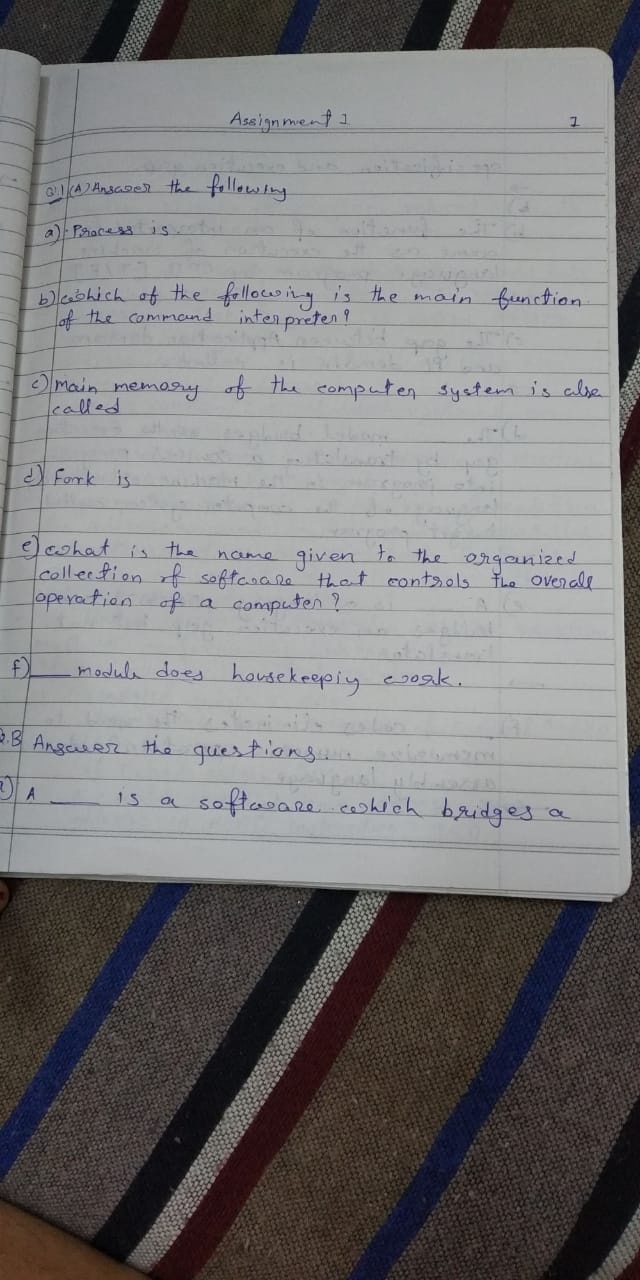 Assignment 1
1
Q.1 (A) Answer the following
a) Process is.
b) which of the following is the main function
of the command interpreter?
c) Main memory of the computer system is also
called
d) Fork is
e) what is the name given to the organized
collection of software that controls the overall
operation of a computer?
f) ____ module does housekeepiy work.
Q.B Answer the questions.
a) A ____ is a software which bridges a